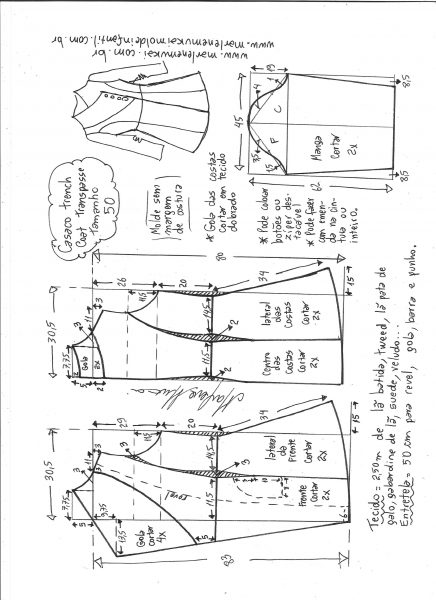 www.marlenemukaimoldeinfantil.com.br
www.marlenemukai.com.br
Casaco Trench
Coat Transpasse
Tamanho
50
Molde sem
margem
de costura
* Gola das costas
cortar em tecido
dobrado
* Pode colocar
botões ou
zíper des
tacável
* Pode fazer
com emen
da na cin
tura ou
inteiro.
19
4
1
C
F
45
3,5
1,5
Manga
Cortar
2x
62
8,5
8,5
80
30,5
7,75
3
11
3
26
11,5
20
34
15
Gola
2x
5
2
14,5
11,5
2
2
lateral
das
Costas
Cortar
2x
Centro
das
Costas
Cortar
2x
Marlene Mukai
30,5
7,75
11
3
3
29
20
34
15
5
9,75
17,5
revel
14,5
11,5
3
lateral
da
Frente
Cortar
2x
Frente
Cortar
2x
Gola
cortar
4x
5
6
83
Tecido = 2,50m de lã batida, tweed, lã pata de
galo, gabardine de lã, suede, veludo...
Entretela = 50 cm para revel, gola, barra e punho.